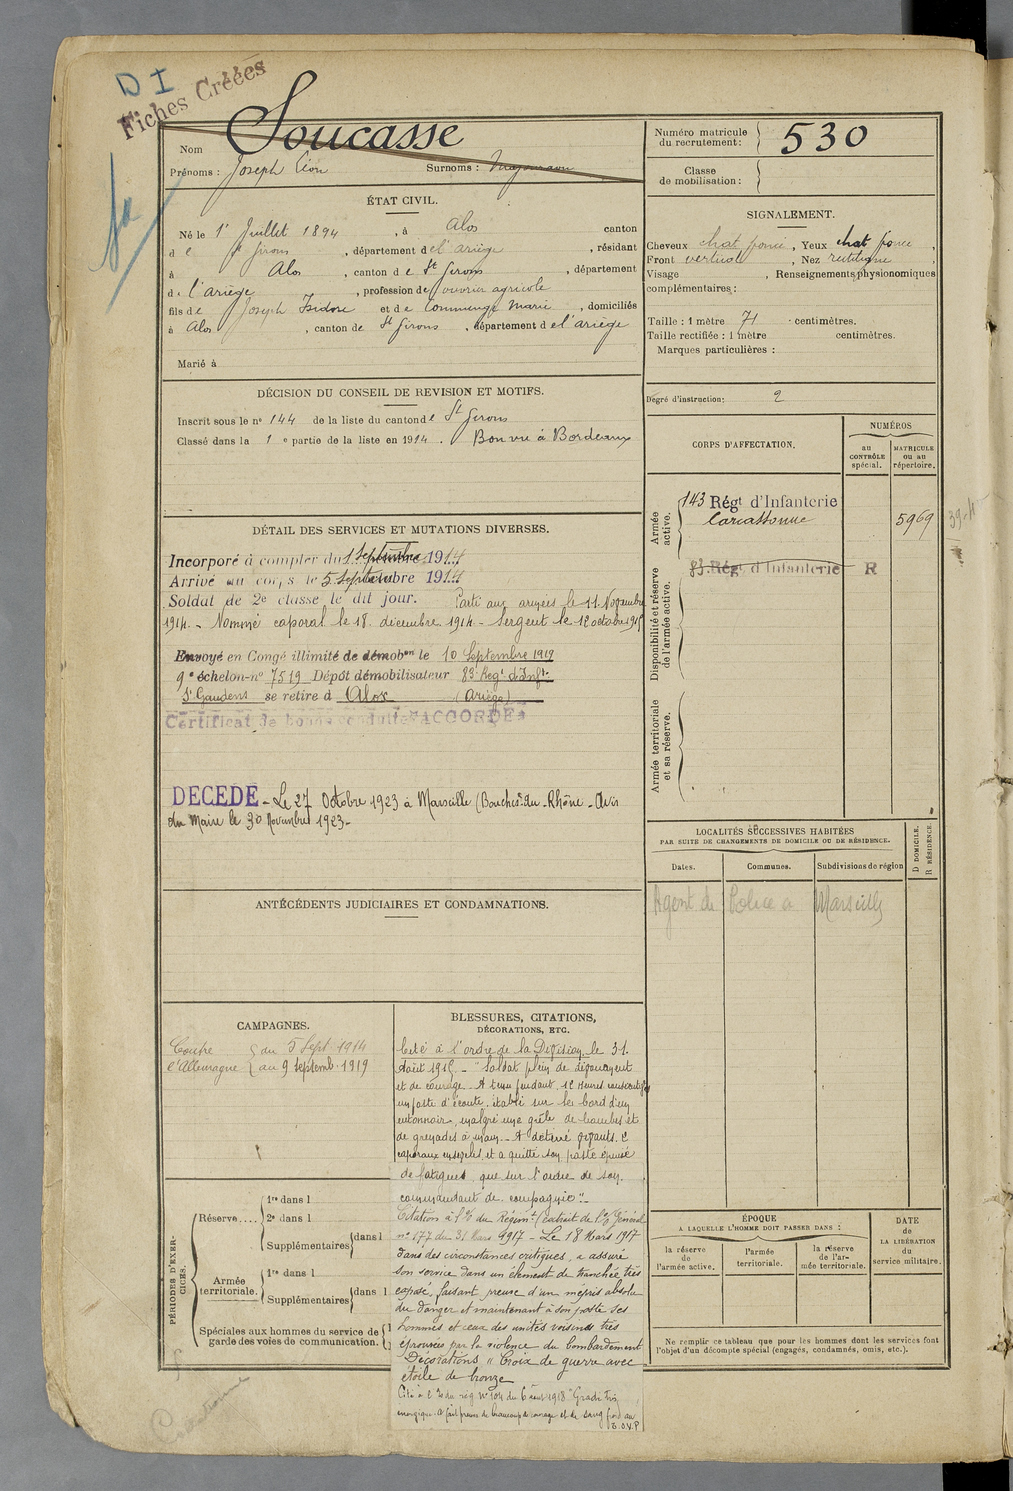 D I
Fiches Créées
Nom Soucasse
Prénoms : Joseph Léon Surnoms :
Numéro matricule du recrutement : 530
Classe de mobilisation :
ÉTAT CIVIL.
Né le 1er Juillet 1894, à Alos canton
de St Girons, département de l'ariège, résidant
à Alos, canton de St Girons, département
de l'ariège, profession de ouvrier agricole
fils de Joseph Isidore et de Commenge Marie, domiciliés
à Alos, canton de St Girons, département de l'ariège
Marié à
SIGNALEMENT.
Cheveux chat foncé, Yeux chat foncé,
Front vertical, Nez rectiligne,
Visage , Renseignements physionomiques
complémentaires :
Taille : 1 mètre 71 centimètres.
Taille rectifiée : 1 mètre centimètres.
Marques particulières :
Degré d'instruction : 2
DÉCISION DU CONSEIL DE REVISION ET MOTIFS.
Inscrit sous le no 144 de la liste du canton de St Girons
Classé dans la 1 e partie de la liste en 1914. Bon vu à Bordeaux
CORPS D'AFFECTATION.
NUMÉROS
au CONTRÔLE spécial.
MATRICULE ou au répertoire.
Armée active.
143 Régt d'Infanterie
Carcassonne 5969
Disponibilité et réserve de l'armée active.
83 Régt d'Infanterie R
Armée territoriale et sa réserve.
DÉTAIL DES SERVICES ET MUTATIONS DIVERSES.
Incorporé à compter du 1 Septembre 1914
Arrivé au corps le 5 Septembre 1914
Soldat de 2e classe le dit jour. Parti aux armées le 11 Novembre
1914. - Nommé caporal le 18 décembre 1914 - Sergent le 12 octobre 1915
Envoyé en Congé illimité de démobon le 10 Septembre 1919
9e échelon no 7519 Dépôt démobilisateur 83e Regt d'Inft
St Gaudens se retire à Alos (Ariège)
Certificat de bonne conduite "ACCORDÉ"
DECEDE - Le 27 Octobre 1923 à Marseille (Bouches-du-Rhône - Avis
du Maire le 30 Novembre 1923 -
LOCALITÉS SUCCESSIVES HABITÉES
PAR SUITE DE CHANGEMENTS DE DOMICILE OU DE RÉSIDENCE.
Dates. Communes. Subdivisions de région
D DOMICILE. R RÉSIDENCE.
Agent de Police à Marseille
ANTÉCÉDENTS JUDICIAIRES ET CONDAMNATIONS.
CAMPAGNES.
Contre du 5 Sept 1914
l'Allemagne au 9 septemb. 1919
BLESSURES, CITATIONS,
DÉCORATIONS, ETC.
Cité à l'ordre de la Division le 31
Août 1915 - "Soldat plein de dévouement
et de courage. A tenu pendant 12 heures consécutives
un poste d'écoute établi sur le bord d'un
entonnoir, malgré une grêle de bombes et
de grenades à main - A déterré vivants 2
caporaux ensevelis, et a quitté son poste épuisé
de fatigues, que sur l'ordre de son
commandant de compagnie" -
Citation à l'O/ du Régimt (extrait de l'O/ Général
no 177 du 31 Mars 1917 - Le 18 Mars 1917
dans des circonstances critiques, a assuré
son service dans un élément de tranchée très
exposé, faisant preuve d'un mépris absolu
du danger et maintenant à son poste ses
hommes et ceux des unités voisines très
éprouvées par la violence du bombardement
Décorations "Croix de guerre avec
étoile de bronze
Cité à l'O/ du rég no 104 du 6 août 1918 "Gradé très
énergique. A fait preuve de beaucoup de courage et de sang froid au
PÉRIODES D'EXERCICES.
Réserve....
1re dans l
2e dans l
Supplémentaires dans l
Armée territoriale.
1re dans l
Supplémentaires dans l
Spéciales aux hommes du service de
garde des voies de communication.
ÉPOQUE
A LAQUELLE L'HOMME DOIT PASSER DANS :
la réserve de l'armée active.
l'armée territoriale.
la réserve de l'armée territoriale.
DATE de LA LIBÉRATION du service militaire.
Ne remplir ce tableau que pour les hommes dont les services font
l'objet d'un décompte spécial (engagés, condamnés, omis, etc.).